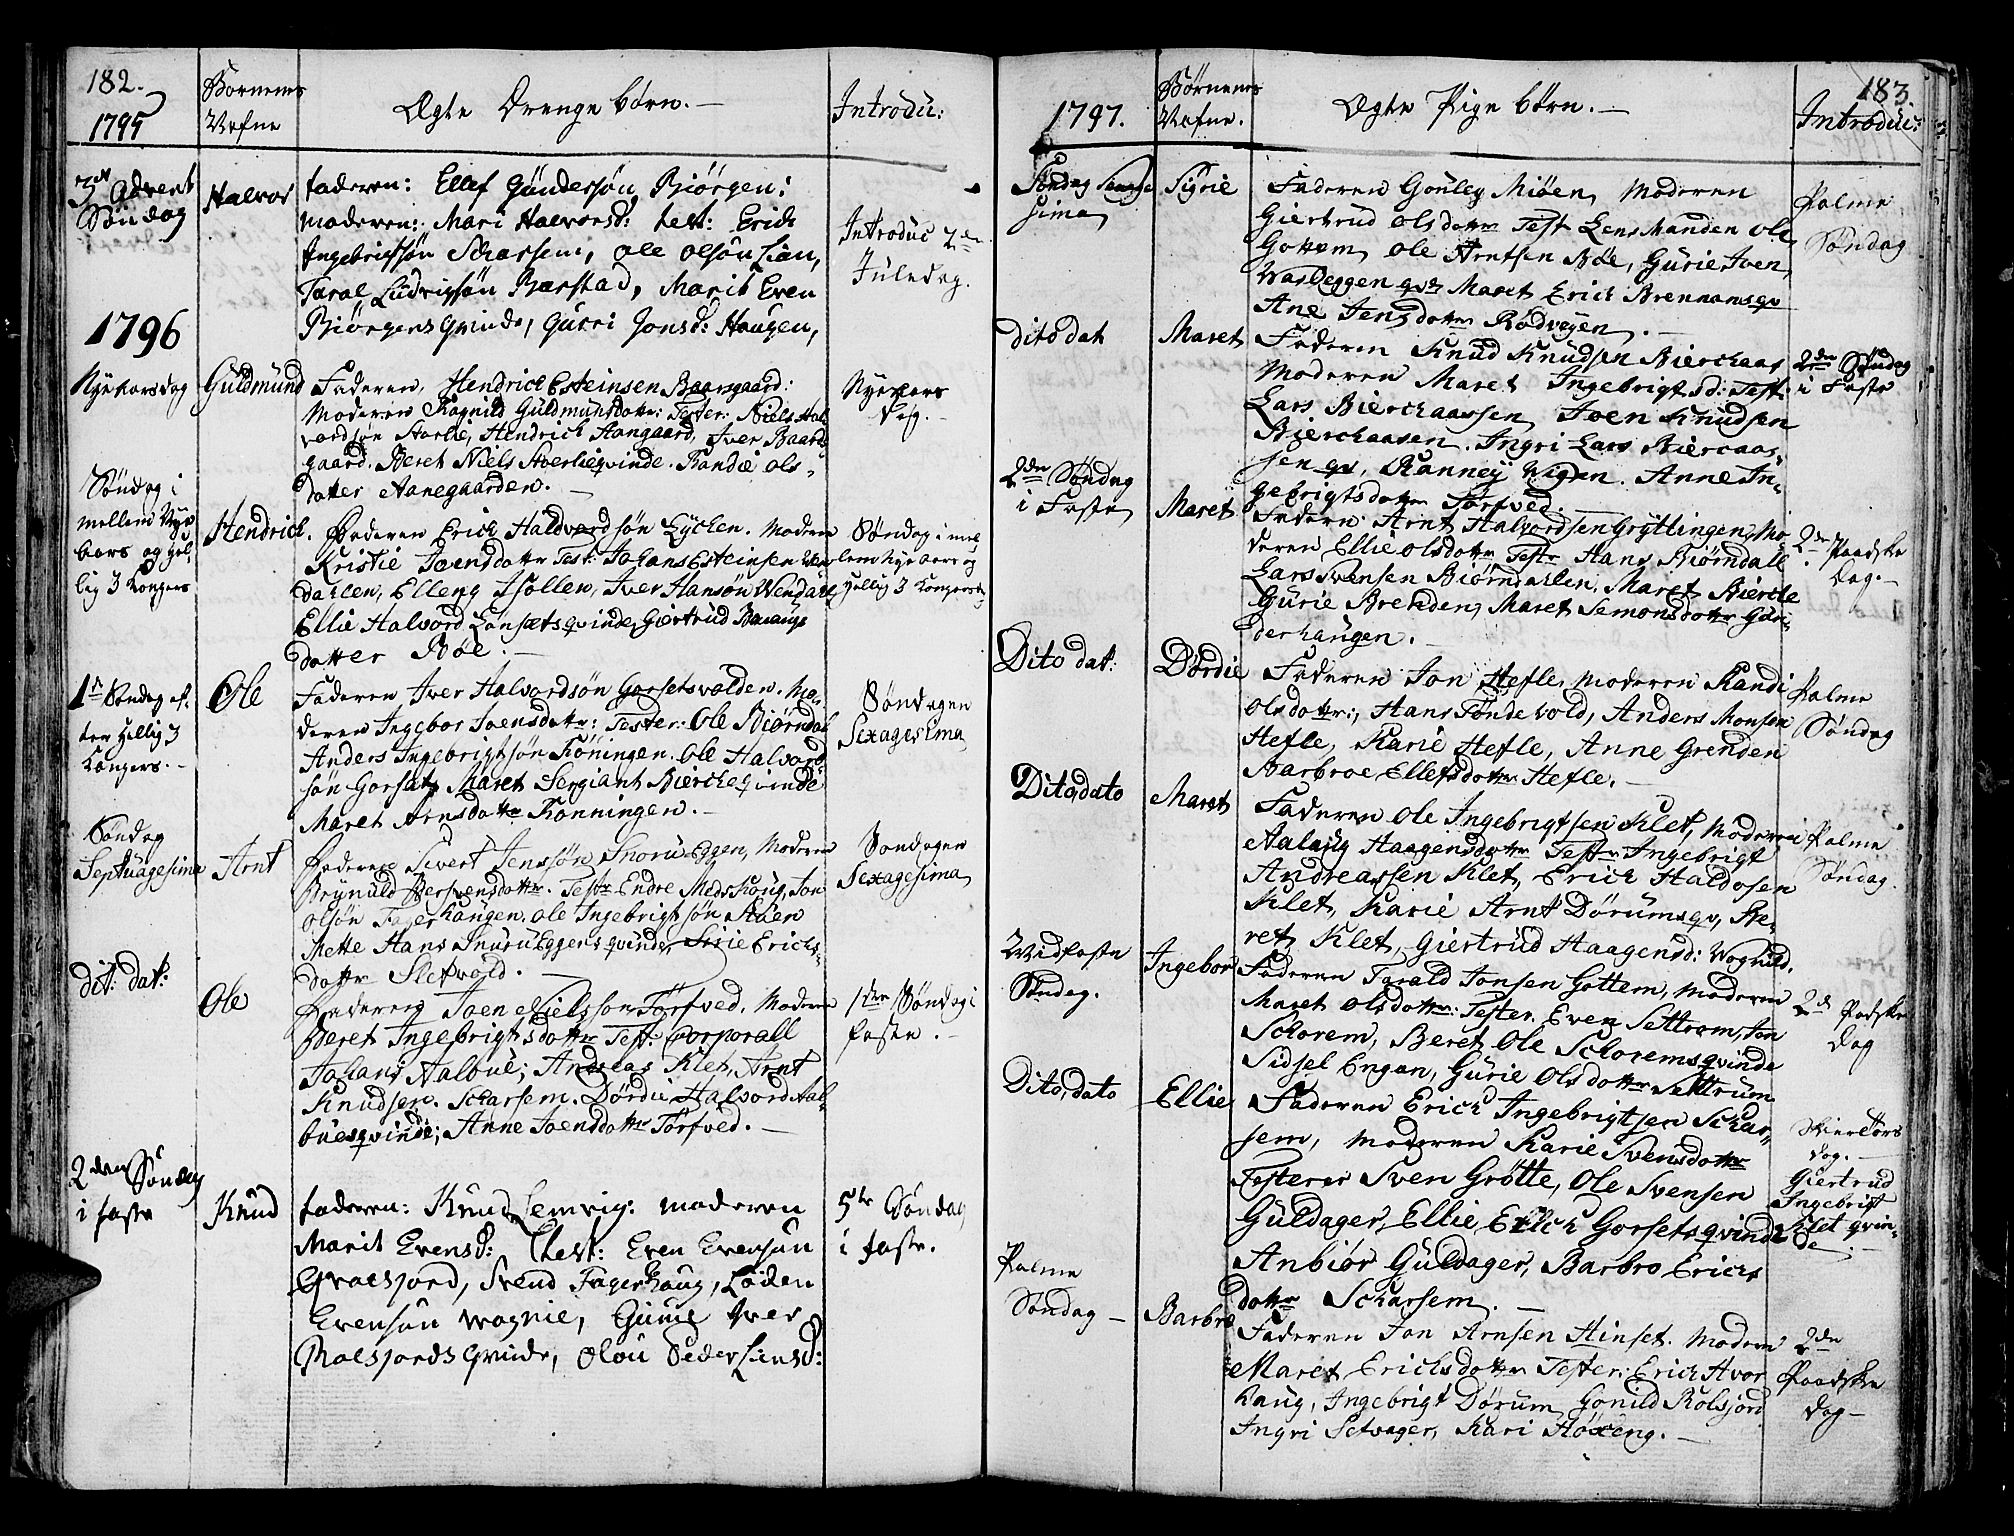 182.
1795
Børnenes
Nafne
Ægte Drenge børn. —
Introdu:
3de Advent
Søndag
Halvor
faderen: Ellef Gundersøn Biørgen:
moderen: Mari Halvorsd: test: Erich
Ingebrigtsøn Scharsem, ole olsøn Lian,
Taral Ludvigsøn Barstad, Marit Even
Biørgens qvinde, Gurri Jonsd: Haugen,
Introduc 2den
Juledag.
1796
Nyeaarsdag
Guldmund
Faderen, Hendrich Esteinsen Baarsgaard:
Moderen Ragnild Guldmunsdottr: Tester: Niels Hal
vordsøn Storlie, Hendrich Aangaard, Iver Baards
gaard. Beret Niels Storlieqvinde. Randie ols-
datter Aanegaarden. —
Nyeaars
Dag. —
Søndag i
mellem Nye
aars og Hel
lig 3 Kongers
Hendrich.
Faderen Erich Haldvordsøn Lychen. Moderen
Kristie Joensdottr Test: Johans Esteinsen
dahlen, Elleng Hollen, Iver Hansøn Wendahl
Ellie Halvord Lønsetsqvinde, Giertrud
datter Bøe. —
Søndag i mel
lem Nye aars og
Hellig 3 Kongers
1ste Søndag ef
ter Hellig 3
Kongers. —
Ole
Faderen Iver Halvordsøn Gorsetsvolden. Mo
deren Ingebor Joensdottr: Tester: Ole Biørndal
Anders Ingebrigtsøn Køningen. Ole Halvord
søn Gorset, Maret Sergiant Bierche qvinde
Maret Arnsdottr Kønningen. —
Søndagen
Sexagesima
Søndag
Septuagesima
Arnt
Faderen Sivert Jenssøn Snoru Eggen, Moderen
Brynuld Bersvensdottr. Testr Endre Medskoug, Jon
olsøn Fagerhaugen. ole Ingebrigtsøn Støen
Mette Hans Snuru Eggens qvinde, Sirie Erichs-
dottr Sletvold. —
Sondagen
Sexagesima
dit: dat:
Ole
Faderen Joen Nielssøn Törfved. Moderen
Beret Ingebrigtsdottr Test: Corporall
Johans Aalbue; Andreas Klet, Arnt
Knudsen. Scharsem. Dördie Halvord Aal-
buesqvinde; Anne Joensdottr Törfved. —
1ste Søndag i
faste. —
2den Søndag
i faste
Knud
faderen: Knud Lemvig: moderen
Marit Evensd: Thest: Even Evensøn
Gvaesjord, Svend Fagerhaug, Loden
Evensøn Wognie, Gunie Iver
Rolsjords qvinde, Olou Peder Liensd:
5te Søndag
i faste.
1797.
Børnenes
Nafne.
Ægte Pige børn. —
183.
Introduc:
Søndag Sexage
sima
Sigrie
Faderen Gouley Miøen, Moderen
Giertrud Olsdottr Test Lensmanden ole
Gottem, ole Arntsen Bøe, Gurie Iven
Wasleggen qv: Maret Erich Brennamsqv
Ane Jensdottr Rødvegen. —
Palme
Søndag
dito dat
Maret
Faderen Knud Knudsen Bierchaas
Moderen Maret Ingebrigtsd: Test:
Lars Bierchaassen, Joen Knudsen
Bierchaasen. Ingri Lars Biercaas-
sen qv, Ranney Wigen. Anne In-
gebrigtsdottr Törfved.
2den Søndag
i Faste
2den Søndag
i Faste
Maret
Faderen: Arnt Halvordsen Gryttingen, Mo-
deren Ellie olsdottr Testr Hans Biörndall
Lars Svensen Biörndahlen. Maret Bierche
Gurie Brenden, Maret Semonsdottr Gun-
derhaugen. —
2de Paaske
Dag. —
Dito dat:
Dördie
Faderen Jon Hefle, Moderen Randi
olsdottr:, Hans Tøndevold, Anders Monsen
Hefle, Karie Hefle, Anne Grenden
Barbroe Ellefsdottr Hefle. —
Palme
Søndag
Dito dato
Maret
Faderen Ole Ingebrigtsen Klet, Moderen
Aalaug Haagensdottr Testr Ingebrigt
Andreassen Klet, Erich Haldosen
Klet, Karie Arnt Dörumsqv, Be-
ret Klet, Giertrud Haagensd: Wognild.
Palme
Søndag
Midfaste
Søndag.
Ingebor
Faderen Tarald Jonsen Gottem, Moderen
Maret olsdottr: Tester. Even Settrom, Jon
Schorem, Beret Ole Schoremsqvinde
Sidsel Engan, Gurie Olsdottr Settrum
2de Paaske
Dag
Dito, dato
Ellie
Faderen Erich Ingebrigtsen Schar-
sem, Moderen Karie Svensdottr
Testere Sven Grøtte, Ole Svensen
Guldager, Ellie Erich Gorsetsqvinde
Anbiør Guldager, Barbro Erichs
dottr Scharsem. —
Skiertors
dag. —
Giertrud
Ingebrigt
Klet qvin-
de. —
Palme
Søndag —
Barbro
Faderen Jon Arnsen Hinset. Moderen
Maret Erichsdottr Tester: Erich Hvor
haug, Ingebrigt Dörum, Gonild Rolsjord
Ingri Setvager, Kari Höxeng. —
2den
Paaske
dag —